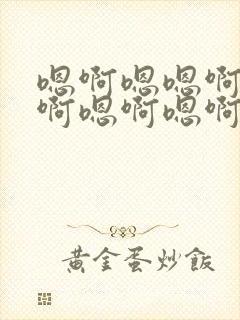 嗯啊嗯嗯啊
啊嗯啊嗯啊
黃金蛋炒飯